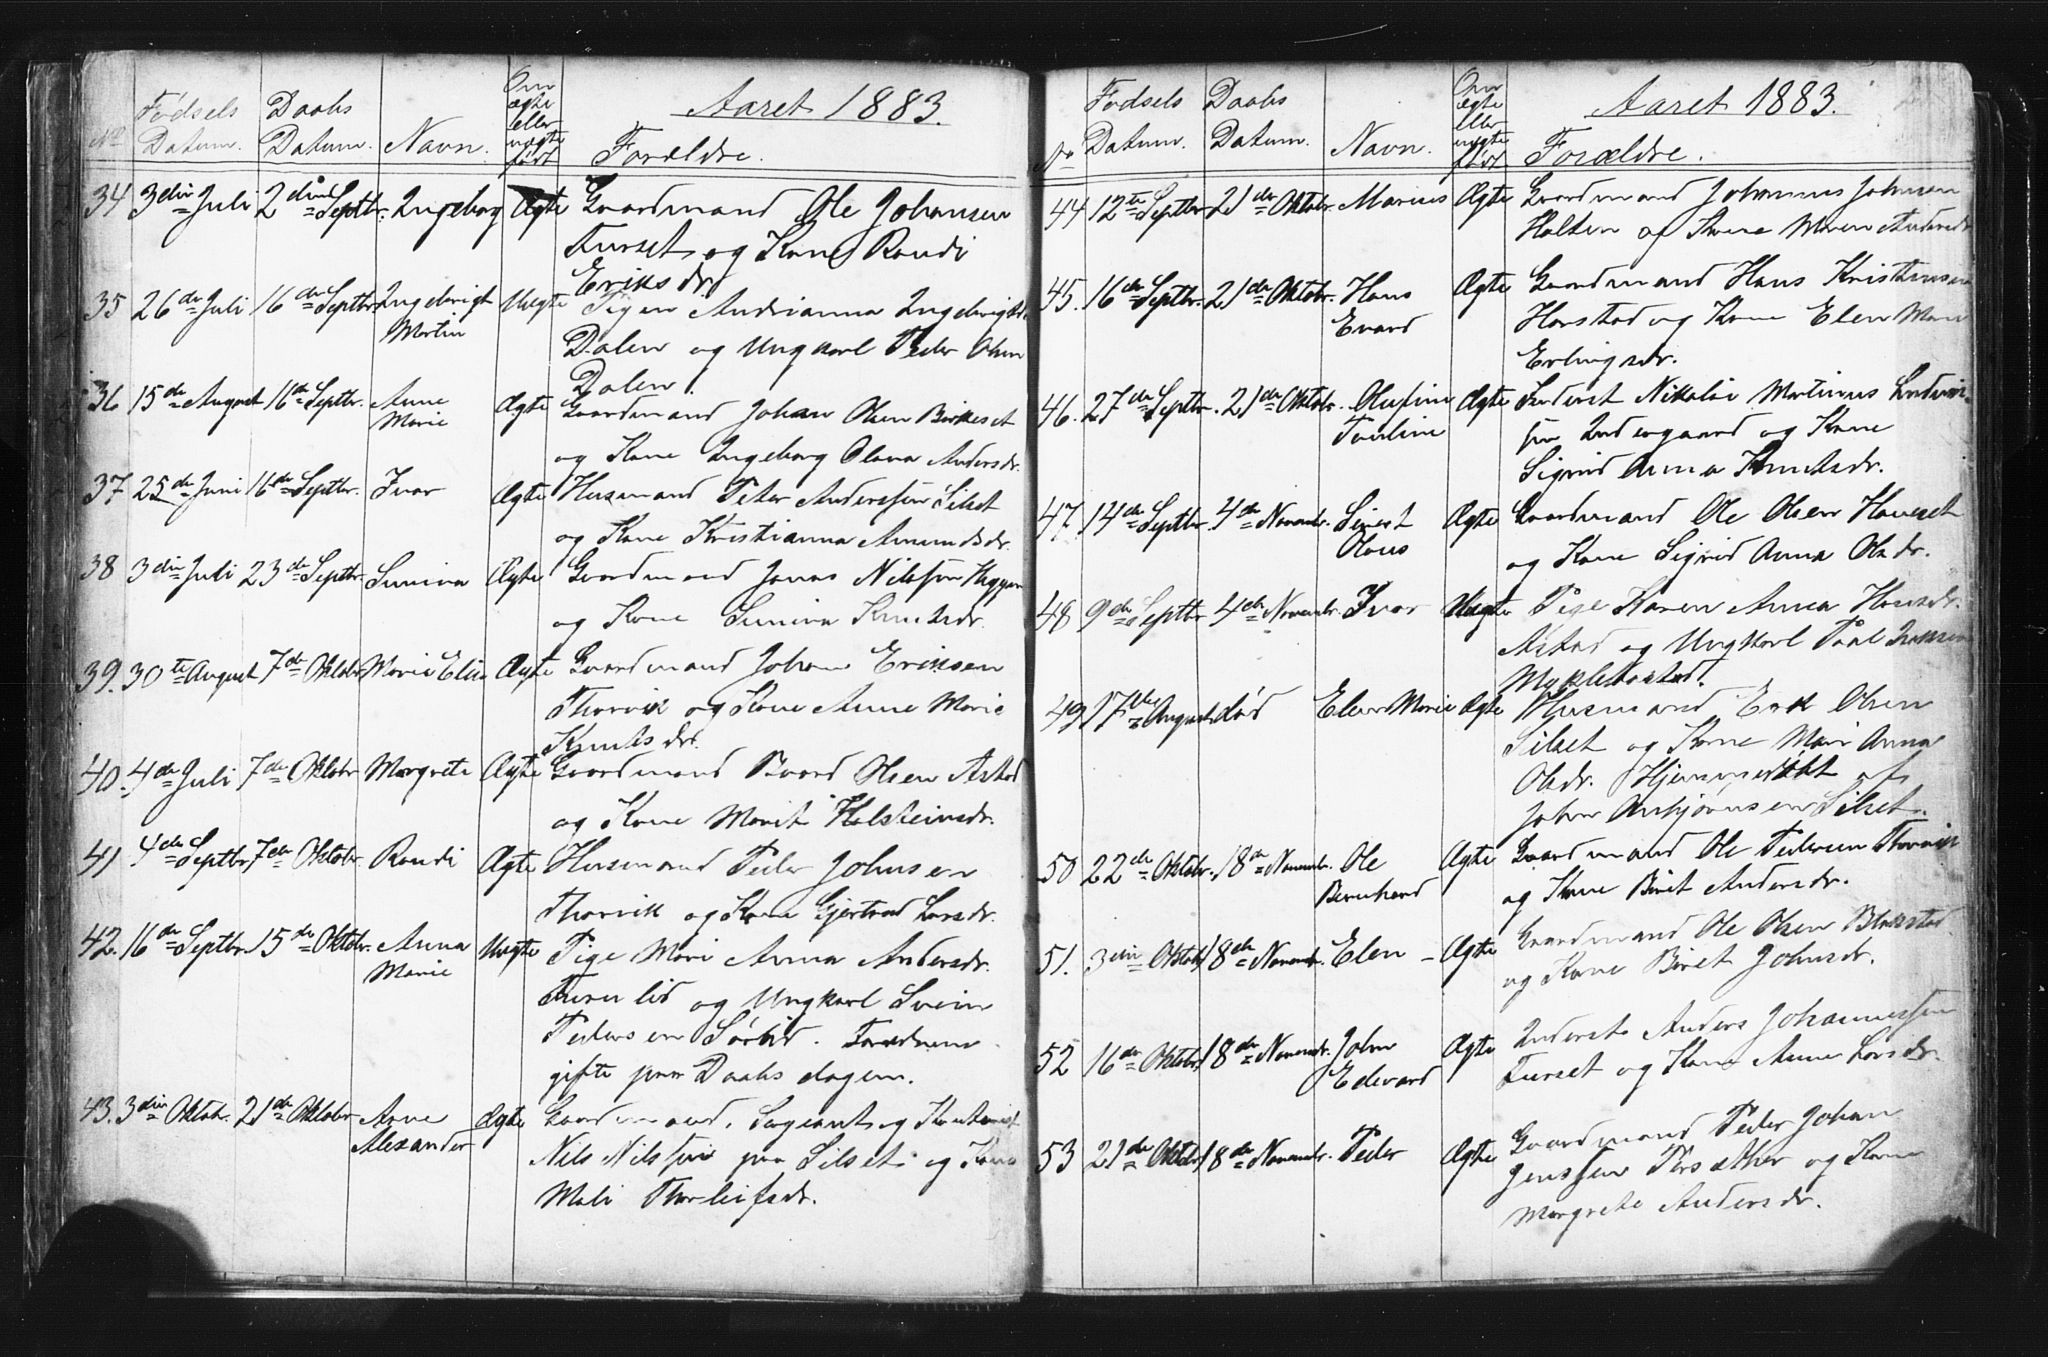 Aaret 1883.
No
Fødsels Datum.
Daabs Datum.
Navn.
Om ægte eller uægte født
Forældre.
34 3die Juli 2den Septbr. Ingeborg Ægte Gaardmand Ole Johansen
Furset og Kone Randi
Eriksdr.
35 26de Juli 16de Septbr. Ingebrigt Uægte Pigen Andrianna Ingebrigtsdr
Martin Dalen og Ungkarl Peder Olsen
Dalen.
36 15de August 16de Septbr. Anne Ægte Gaardmand Johan Olsen Birkeset
Marie og Kone Ingeborg Olava Andersdr.
37 25de Juni 16de Septbr. Ivar Ægte Husmand Peter Anderssen Silset
og Kone Kristianna Amundsdr.
38 3die Juli 23de Septbr. Sunniva Ægte Gaardmand Jonas Nilssen
og Kone Sunniva Knutsdr.
39. 30te August 7de Oktobr Marie Elise Ægte Gaardmand Johan Eriksen
Thorvik og Kone Anne Marie
Knutsdr.
40. 4de Juli 7de Oktobr Margrete Ægte Gaardmand Baard Olsen Astad
og Kone Marit Holsteinsdr.
41 4de Septbr. 7de Oktobr. Randi Ægte Husmand Peder Johnsen
Thorvik og Kone Gjertrud Larsdr.
42. 16de Septbr. 15de Oktobr. Anna Uægte Pige Mari Anna Andersdr.
Marie Furulid og Ungkarl Svein
Pedersen Sørlid. Forældrene
gifte paa Daabsdagen.
43. 3die Oktobr. 21de Oktobr. Arne Ægte Gaardmand, Sargeant og
Alexander Nils Nilssen paa Silset og Kone
Mali Thorleifsdr.
Aaret 1883.
No
Fødsels Datum.
Daabs Datum.
Navn.
Om ægte eller uægte født
Forældre.
44 12te Septbr. 21de Oktobr. Marius Ægte Gaardmand Johannes Johnsen
Holten og Kone Maren Andersdr
45. 16de Septbr. 21de Oktobr. Hans Ægte Gaardmand Hans Kristensen
Evard Harstad og Kone Elen Marie
Erlingsdr.
46. 27de Septbr. 21de Oktobr. Olufine Ægte Inderst Nikolai Martinus
Pauline Indergaard og Kone
Sigrid Anna Knutsdr.
47. 14de Septbr 4de Novembr. Sivert Ægte Gaardmand Ole Olsen Haveset
Olaus og Kone Sigrid Anna Olsdr.
48 9de Septbr 4de Novembr. Ivar Uægte Pige Karen Anna Hansdr.
Astad og Ungkarl Paal
Myklebostad.
49 17de August død Elen Marie Ægte Husmand Erik Olsen
Silset og Kone Mari Anna
Olsdr. Hjemmedøbt af
John Asbjørnsen Silset.
50 22de Oktobr. 18de Novembr. Ole Ægte Gaardmand Ole Pedersen Thorvik
Bernhard og Kone Birit Andersdr.
51. 3die Oktobr 18de Novembr. Elen – Ægte Gaardmand Ole Olsen Blakstad.
og Kone Birit Johnsdr.
52 16de Oktobr. 18de Novembr. John Ægte Inderst Anders Johannessen
Edevard Furset og Kone Anne Larsdr.
53 21de Oktobr 18de Novembr. Peder Ægte Gaardmand Peder Johan
Jenssen Torsæther og Kone
Margrete Andersdr.